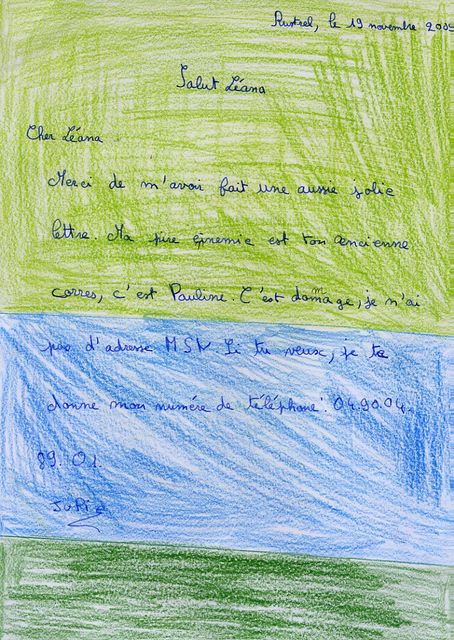 Rustrel, le 19 novembre 2005
Salut Léana
Cher Léana
Merci de m'avoir fait une aussie jolie
lettre. Ma pire ennemie est ton ancienne
corres, c'est Pauline. C'est dommage, je n'ai
pas d'adresse MSN Si tu veux, je te
donne mon numére de téléphone: 04.90.04.
89.01.